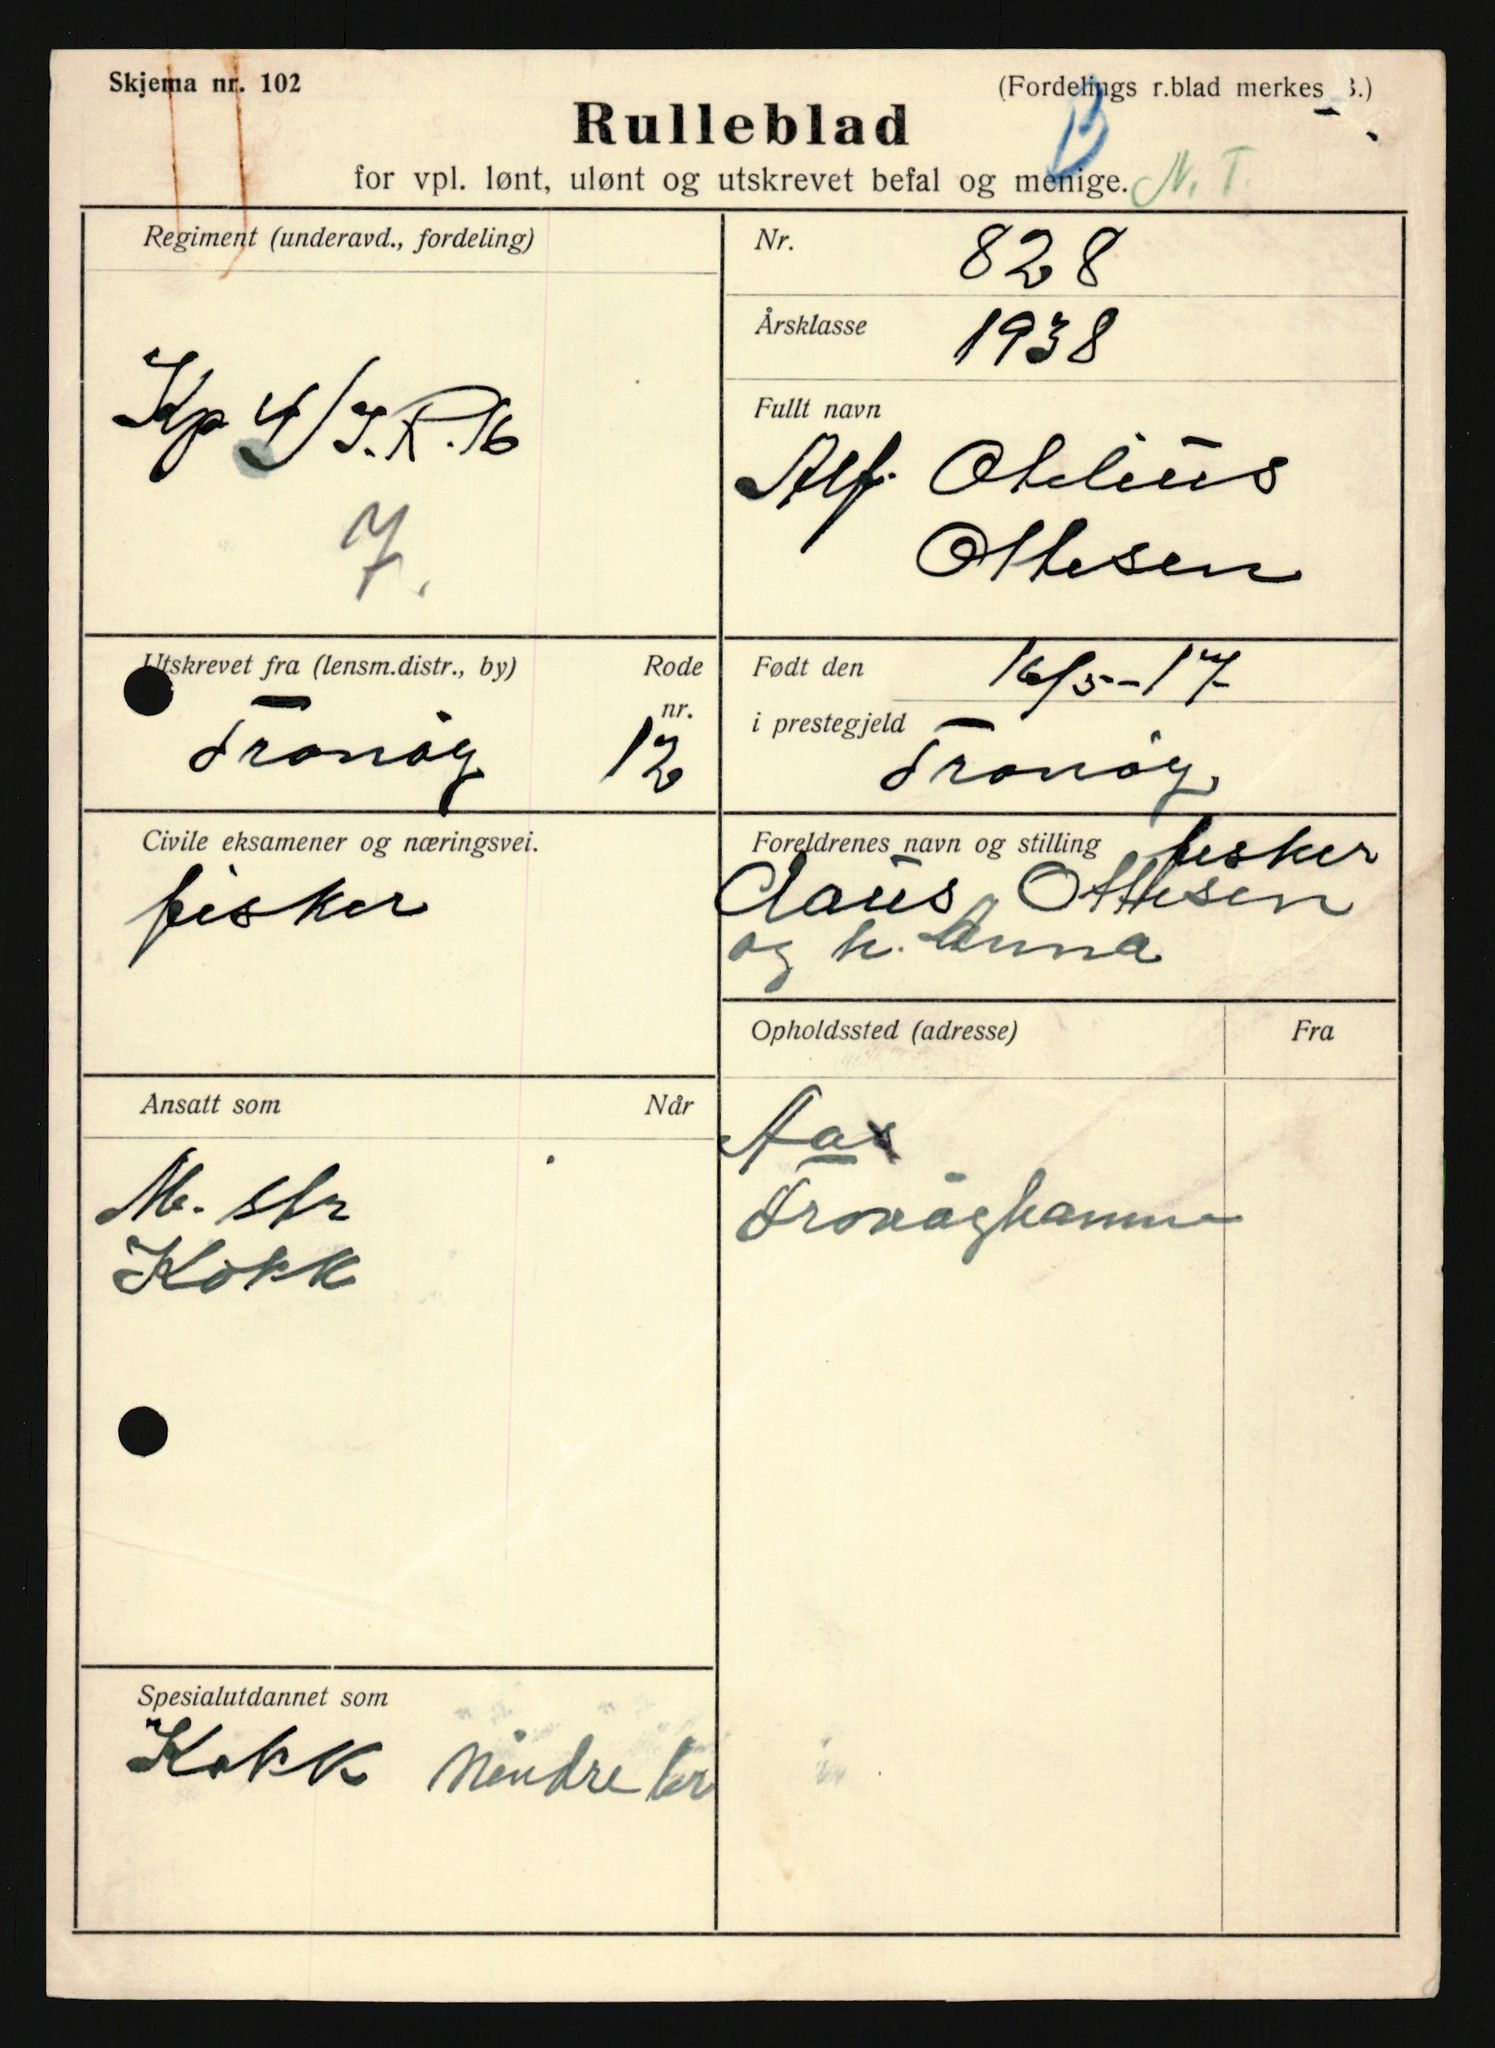 Skjema nr. 102
(Fordelings r.blad merkes B.)
Rulleblad
B
for vpl. lønt, ulønt og utskrevet befal og menige. N. T.
Regiment (underavd., fordeling)
Kp 4/I.R.16
7.
Nr. 828
Årsklasse 1938
Fullt navn
Alf. Othius
Ottesen
Utskrevet fra (lensm.distr., by)
Rode nr.
Tranøy 12
Født den 16/5-17
i prestegjeld Tranøy
Civile eksamener og næringsvei.
fisker
Foreldrenes navn og stilling fisker
Claus Ottesen
og h. Anna
Opholdssted (adresse)
Fra
Aas
Ansatt som
Når
M. str
Kokk
Spesialutdannet som
Kokk Mindre